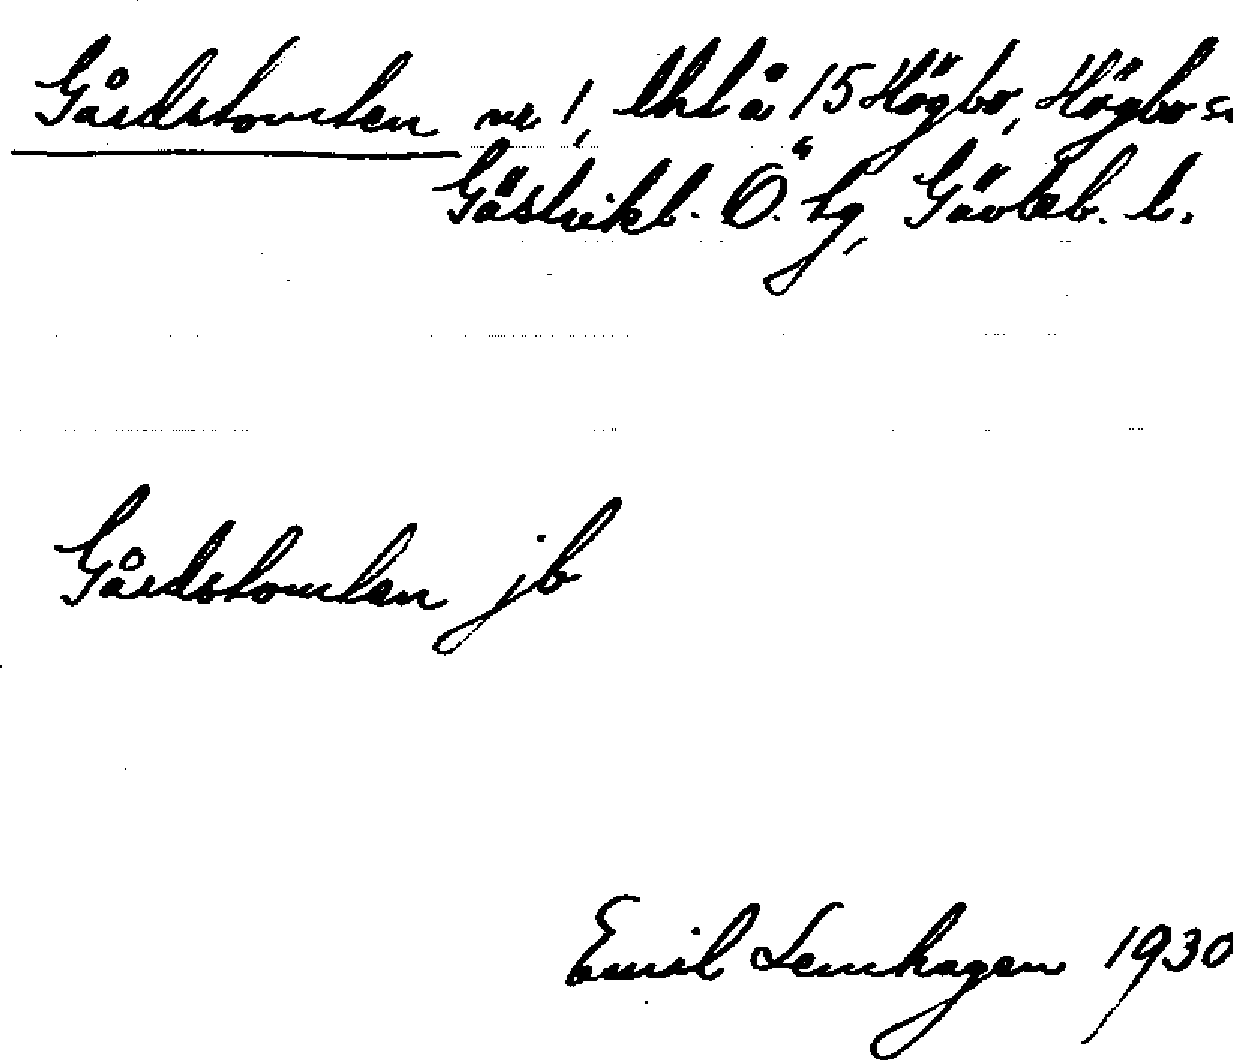 Gårdstomten nr 1, lht å 15 Högbo, Högbo s
Gästrikl. Ö. hg, Gävleb. l.
Gårdstomten jb
Emil Lennhagen 1930